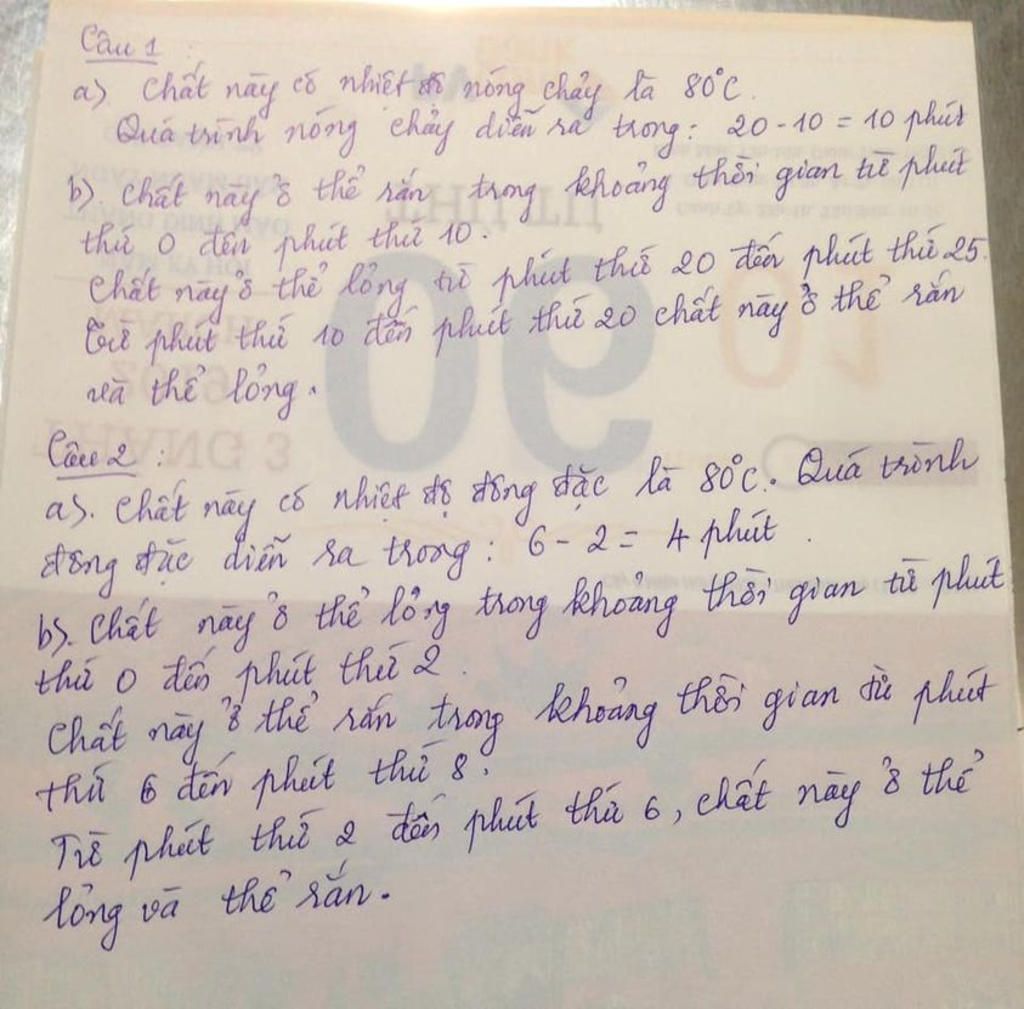 Câu 1 :
a) Chất này có nhiệt độ nóng chảy là 80°C.
Quá trình nóng chảy diễn ra trong: 20 - 10 = 10 phút
b) Chất này ở thể rắn trong khoảng thời gian từ phút
thứ 0 đến phút thứ 10.
Chất này ở thể lỏng từ phút thứ 20 đến phút thứ 25.
Từ phút thứ 10 đến phút thứ 20 chất này ở thể rắn
và thể lỏng.
Câu 2 :
a). Chất này có nhiệt độ đông đặc là 80°C. Quá trình
đông đặc diễn ra trong: 6 - 2 = 4 phút.
b). Chất này ở thể lỏng trong khoảng thời gian từ phút
thứ 0 đến phút thứ 2.
Chất này ở thể rắn trong khoảng thời gian từ phút
thứ 6 đến phút thứ 8.
Từ phút thứ 2 đến phút thứ 6, chất này ở thể
lỏng và thể rắn.
06
01
THÁNG 3